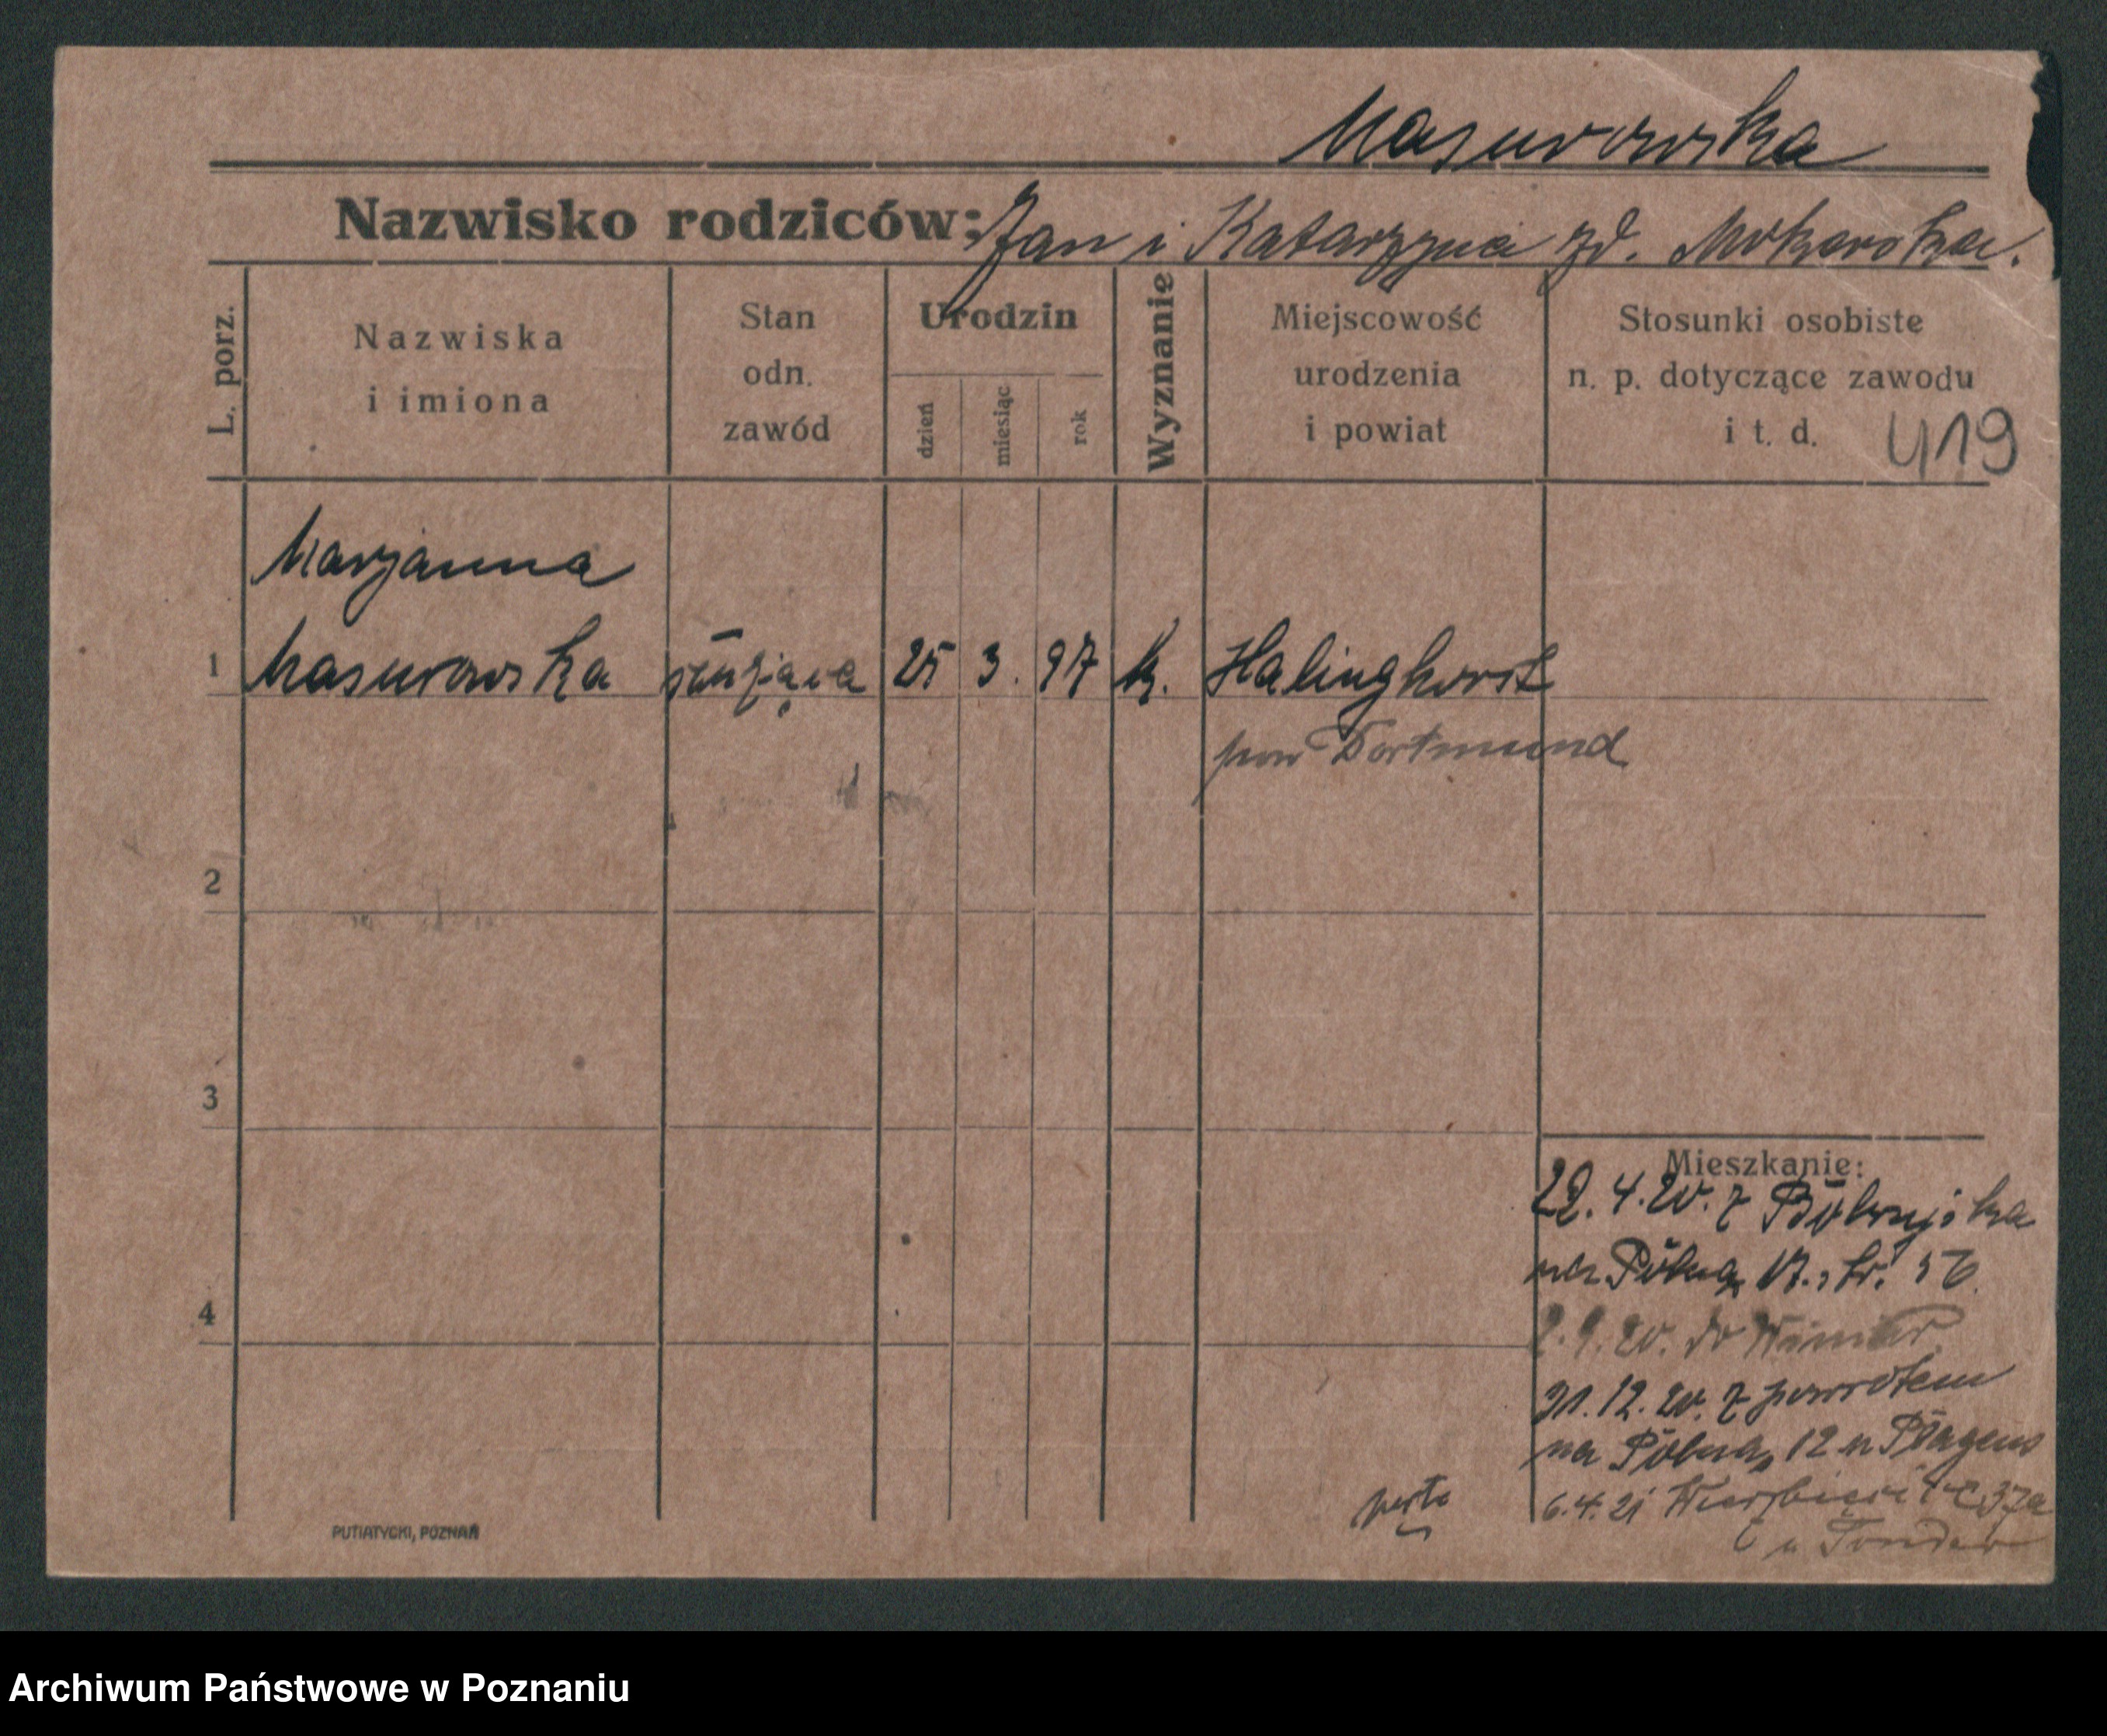 Masurowska
Nazwisko rodziców: Jan i Katarzyna zd. Mokarska.
L. porz.
Nazwiska
i imiona
Stan
odn.
zawód
Urodzin
dzień
miesiąc
rok
Wyznanie
Miejscowość
urodzenia
i powiat
Stosunki osobiste
n. p. dotyczące zawodu
i t. d.
419
Marjanna
1 Masurowska służąca 25 3. 97 k. Halinghorst
pow Dortmund
2
3
4
Mieszkanie:
22.4.20. z
na Półwą 17.
2.9.20. do
31.12.20. z powrotem
na Półwą 12 u
6.4.21 37a
u Tonder
PUTIATYCKI, POZNAŃ
Archiwum Państwowe w Poznaniu